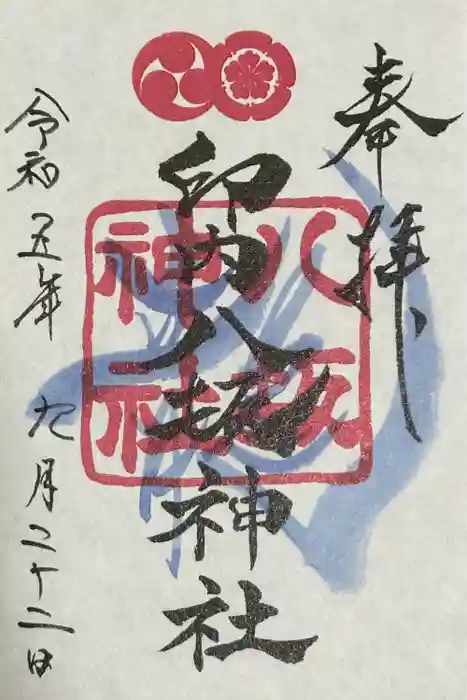 奉拝
印内八坂神社
八坂
神社
令和五年九月二十二日